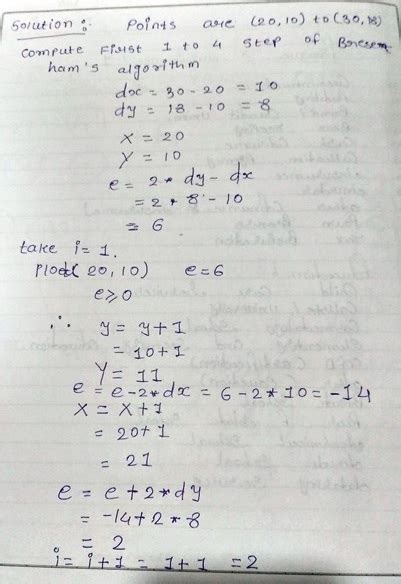 Solution :- Points are (20,10) to (30,18)
Compute First 1 to 4 step of Bresem
ham's algorithm
dx = 30 - 20 = 10
dy = 18 - 10 = 8
X = 20
Y = 10
e = 2 * dy - dx
= 2 * 8 - 10
= 6
take i = 1.
Plot( 20, 10) e = 6
e ≥ 0
∴ y = y + 1
= 10 + 1
Y = 11
e = e - 2 * dx = 6 - 2 * 10 = -14
X = X + 1
= 20 + 1
= 21
e = e + 2 * dy
= -14 + 2 * 8
= 2
i = i + 1 = 1 + 1 = 2